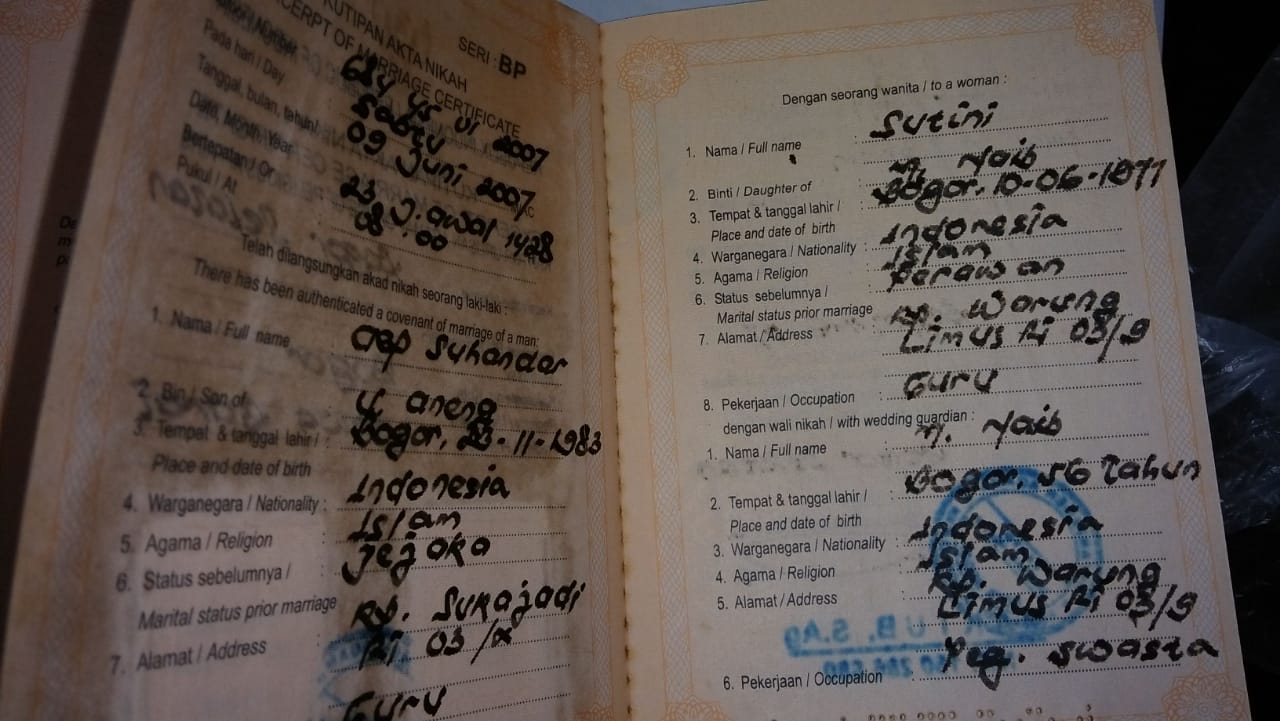 KUTIPAN AKTA NIKAH
EXCERPT OF MARRIAGE CERTIFICATE
SERI : BP
684 45 VI 2007
Pada hari / Day : Sabtu
Tanggal, bulan, tahun / 09 Juni 2007
Date, Month, Year
Bertepatan / Or 23 J. awal 1428
Pukul / At 08.00
Telah dilangsungkan akad nikah seorang laki-laki :
There has been authenticated a covenant of marriage of a man:
1. Nama / Full name : Suhandar
2. Bin / Son of : aneng
3. Tempat & tanggal lahir / : Bogor, 23-11-1983
Place and date of birth
4. Warganegara / Nationality : Indonesia
5. Agama / Religion : Islam
6. Status sebelumnya / : jejaka
Marital status prior marriage
7. Alamat / Address : Kp. Sukajadi
03/
Guru
Dengan seorang wanita / to a woman :
1. Nama / Full name : Sutini
2. Binti / Daughter of : M. Naib
3. Tempat & tanggal lahir / : Bogor, 10-06-1977
Place and date of birth
4. Warganegara / Nationality : Indonesia
5. Agama / Religion : Islam
6. Status sebelumnya / : Perawan
Marital status prior marriage
7. Alamat / Address : Kp. Warung
Limus Rt 03/9
8. Pekerjaan / Occupation : Guru
dengan wali nikah / with wedding guardian :
1. Nama / Full name : M. Naib
2. Tempat & tanggal lahir / : Bogor, 56 Tahun
Place and date of birth
3. Warganegara / Nationality : Indonesia
4. Agama / Religion : Islam
5. Alamat / Address : Kp. Warung
Limus Rt 03/9
6. Pekerjaan / Occupation : Peg. Swasta